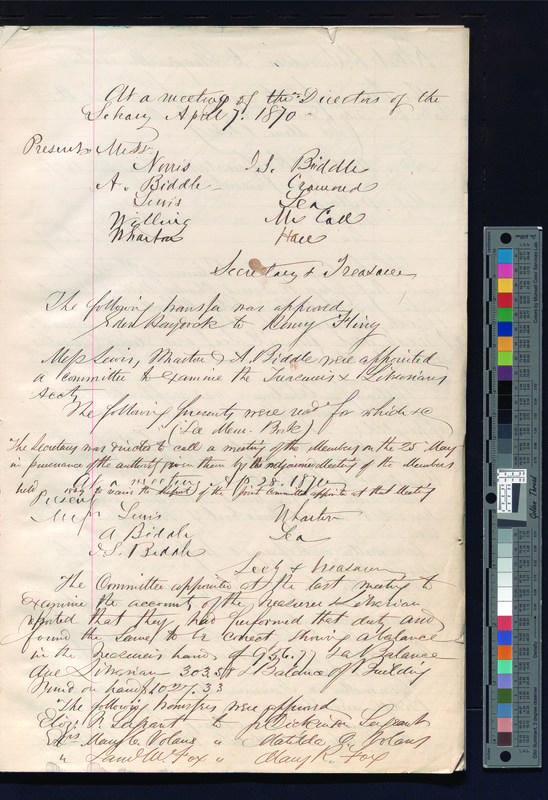 At a meeting of the Directors of the
Library April 7. 1870
Present Messrs
Norris J.S. Biddle
A. Biddle Crawford
Lewis Lea
Willing McCall
Wharton Hare
Secretary & Treasurer
The following transfer was approved
to Henry
Mess Lewis, Wharton & A. Biddle were appointed
a committee to examine the Treasurers & Librarians
accts
The following presents were rec'd for which &c
(See Mem. Book)
The Secretary was directed to call a meeting of the Members on the 25 May
in pursuance of the authority given them by the adjourned Meeting of the Members
held to receive the Report of the Joint Committee appointed at that Meeting
At a meeting 28. 1870
Present
Messrs Lewis Wharton
A Biddle Lea
J.S. Biddle
Secy & Treasurer
The Committee appointed at the last meeting to
examine the accounts of the Treasurer & Librarian
reported that they had performed that duty and
found the same to be correct, showing a balance
in the Treasurers hands of Balance
due Librarian Balance of Building
Fund on hand
The following transfers were approved
Eliz. R. Sergeant to J. Dickinson Sergeant
Exrs Mary C. Volans " Matilda C. Volans
" Saml W. Fox " Mary R. Fox